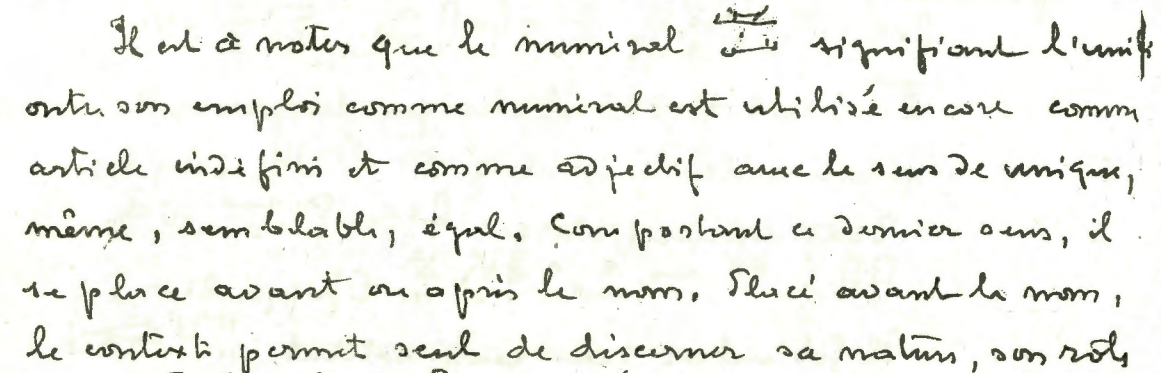 Il est à noter que le numéral signifiant l'unité
outre son emploi comme numéral est utilisé encore comm
article indéfini et comme adjectif avec le sens de unique,
même, semblable, égal. Comportant ce dernier sens, il
se place avant ou après le nom. Placé avant le nom,
le contexte permet seul de discerner sa nature, son rôle